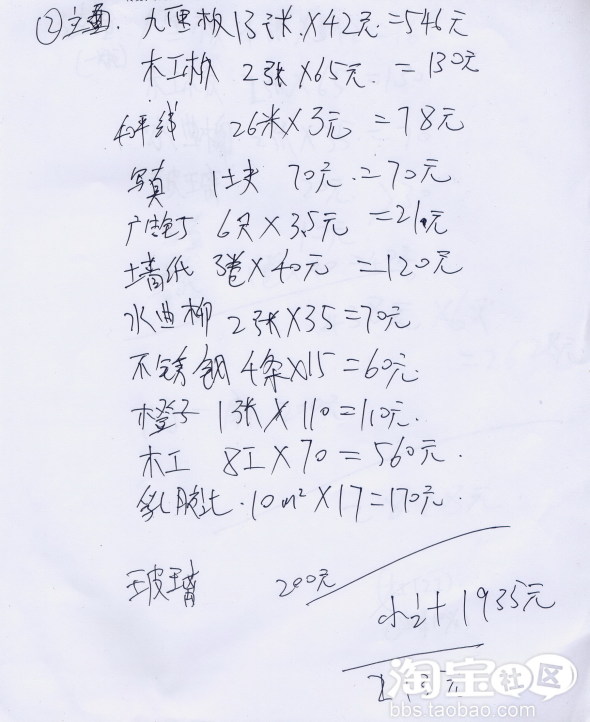 ② 立面. 九厘板 13张.×42元.=546元
木工板 2张×65元. = 130元
平线 26米×3元 = 78元
写真 1块 70元.=70元
广告钉 6只×3.5元 =21元
墙纸 3卷×40元 =120元
水曲柳 2张×35=70元
不锈钢 4条×15=60元.
木橙子 1张×110=110元.
木工 8工×70=560元.
乳胶 .10m²×17=170元.
玻璃 200元
小计 1935元
元
淘宝社区
bbs.taobao.com